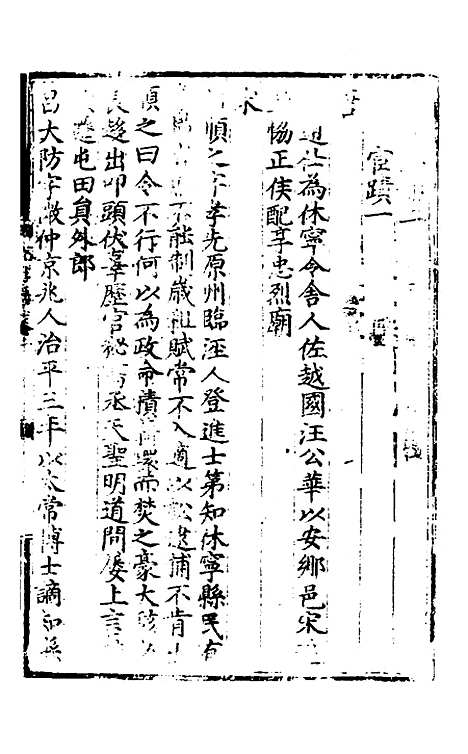 宦蹟一
為休寧令舍人佐越國汪公華以安鄉邑宋
協正侯配享忠烈廟
宋
順之字孝先原州臨涇人登進士第知休寧縣民有
不能制歲租賦常不入適以訟逮捕不肯
順之曰令不行何以為政命積薪環而焚之豪大駭
長趨出叩頭伏辜歷官秘丞天聖明道間屢上言
遷屯田員外郎
呂大防字微仲京兆人治平三年以太常博士謫知